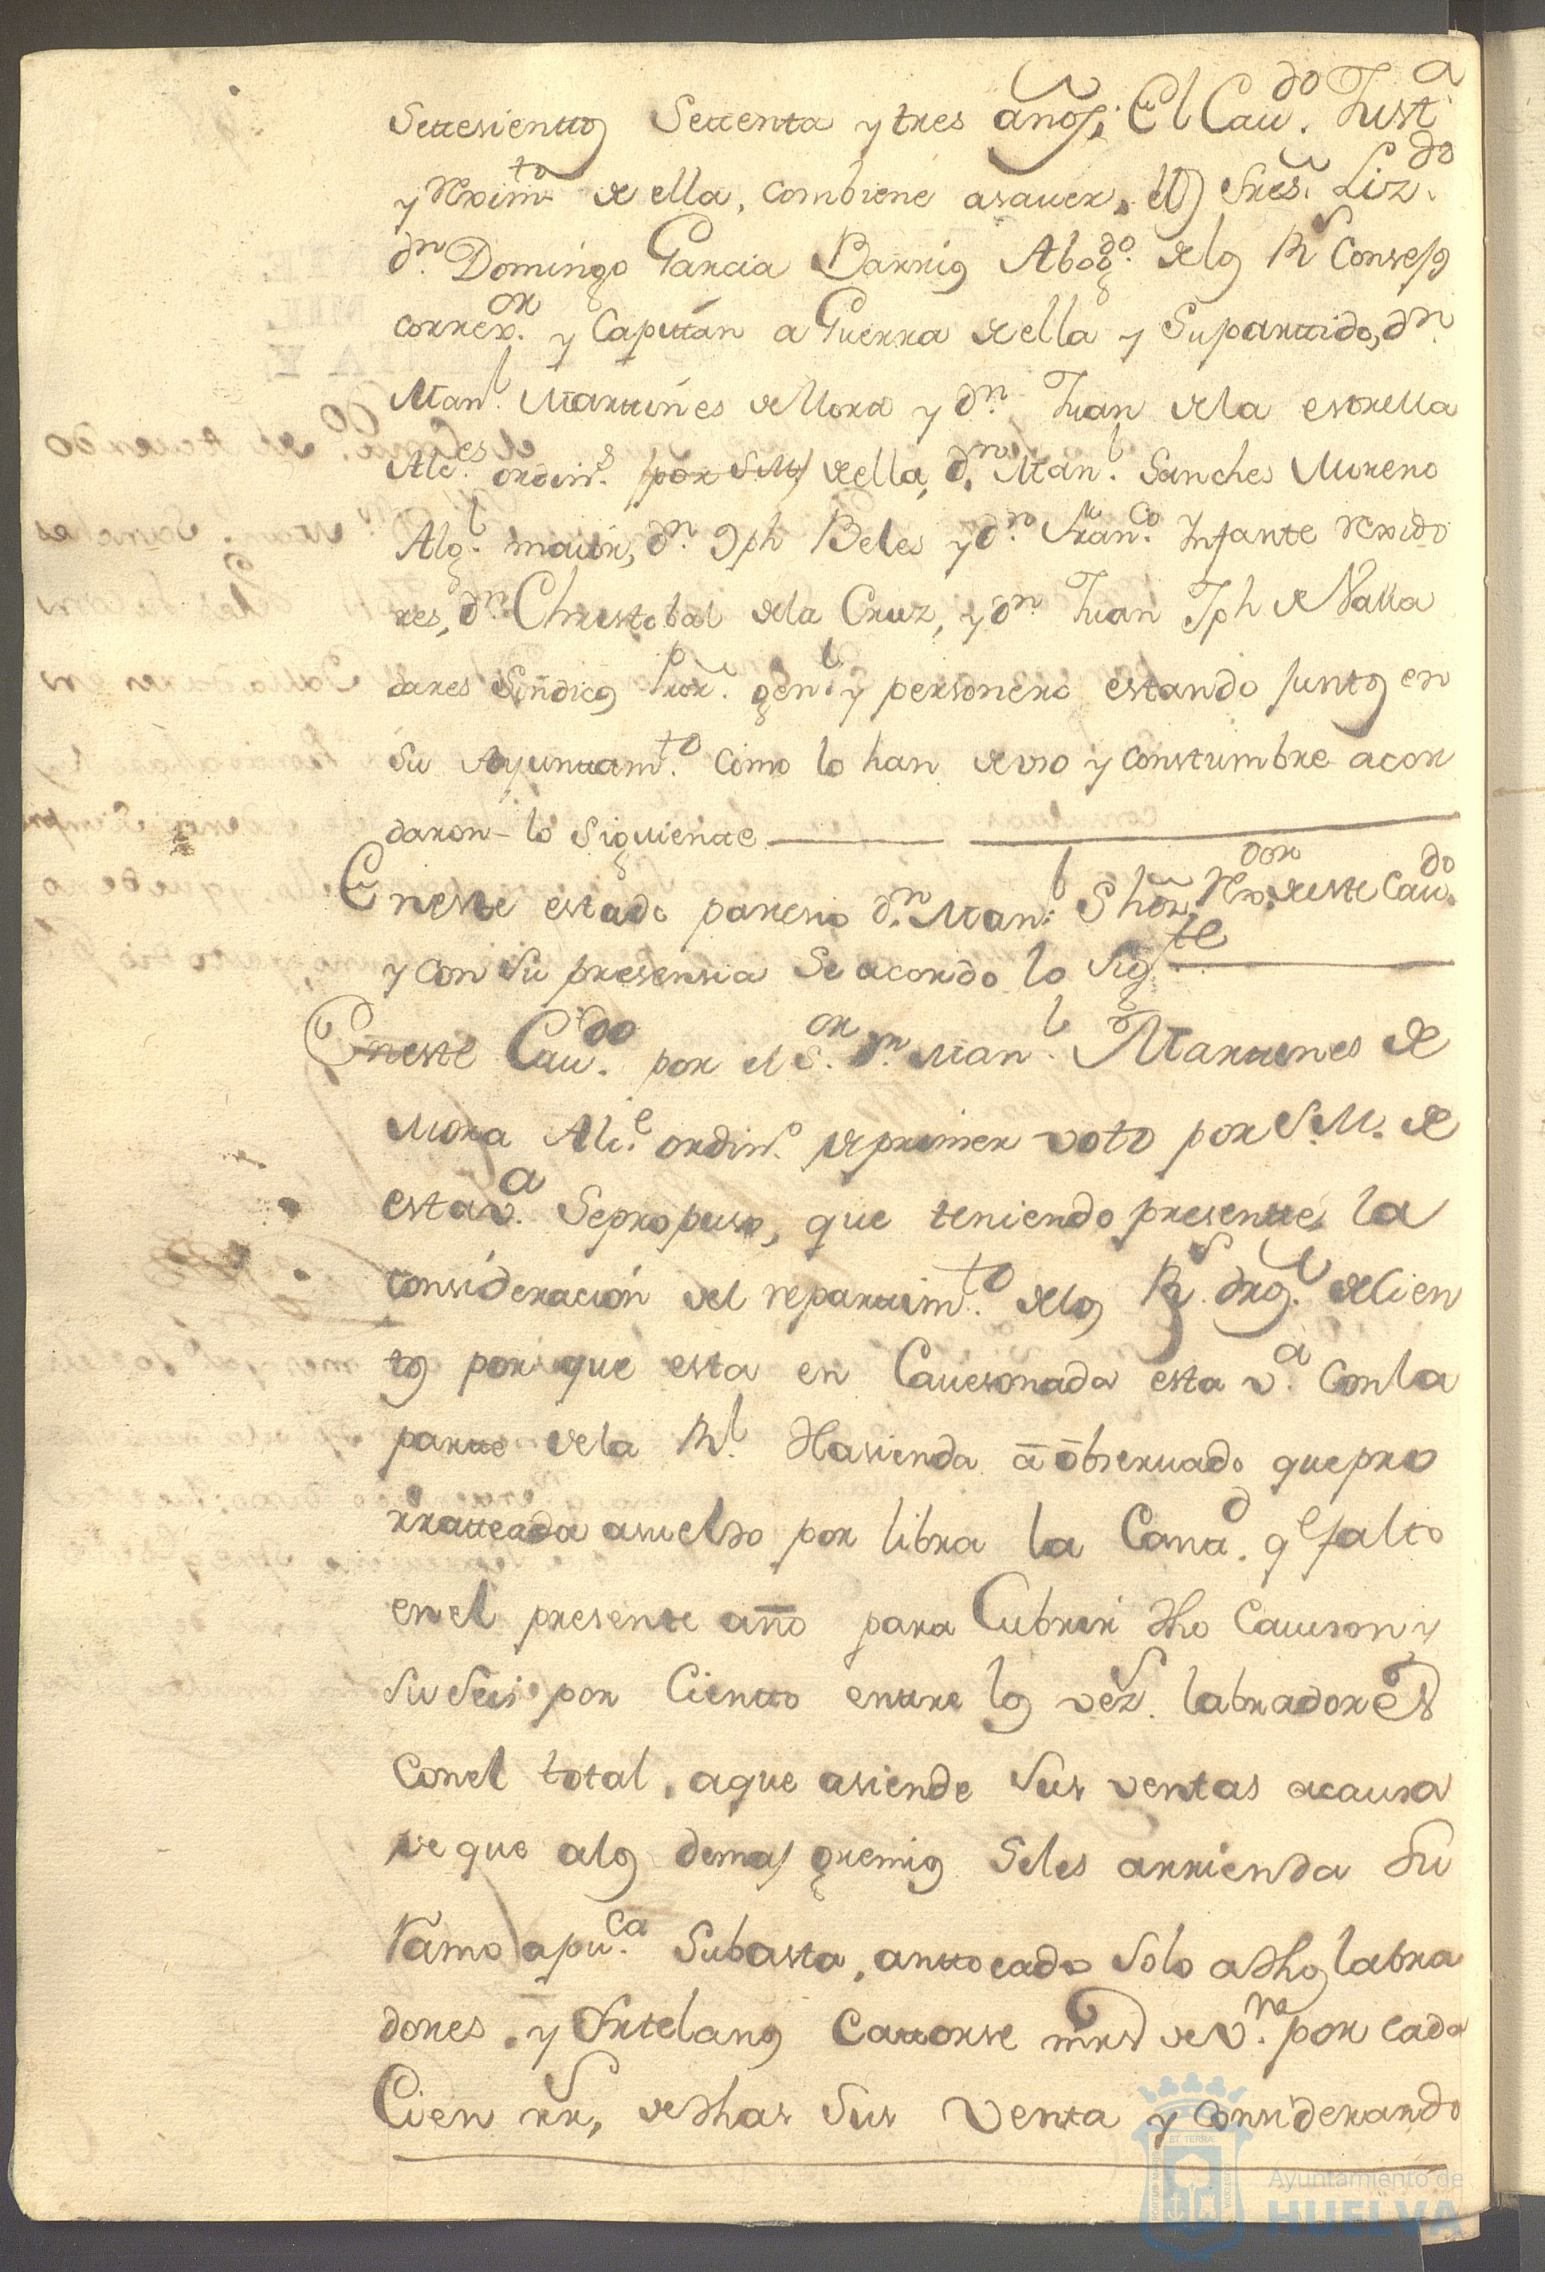 Settesienttos Settenta y tres años, El Cavdo Justa
y Reximto de ella, combiene asaver, los Sres. Lizdo
dn Domingo Garcia Barrios Abogdo delos Rs Consejos
correxor y Capittán a Guerra de ella y Supartido, dn
Manl Marttines de Mora y dn Juan dela estrella
Alces ordins por S.M. de ella, dn Manl Sanches Moreno
Algl maior, dn Jph Beles y dn Franco Infante Rexido
res, dn Christobal dela Cruz, y dn Juan Jph de Valla
dares Síndicos Pror genl y personero estando juntos en
su Ayunttamto como lo han de uso y constumbre acor
daron lo siguiente
En este estado paresio dn Manl Rexor deeste Cavdo
y con su presensia Se acordo lo sigte
Eneste Cavdo por el Sor dn Manl Marttines de
Mora Alce ordino de primer voto por S.M. de
esta va Sepropuso, que teniendo presentte la
considerasion del reparttimto delos Rs dros de Cien
tos por que esta en Cavesonada esta va Conla
partte dela Rl Hasienda a observado que pro
rratteada asueldo por libra la Cantd qe falto
enel presente año para Cubrir dho Caveson y
su Seis por Cientto enttre los vezs labradores
Conel total, aque asiende Sus ventas acausa
de que alos demas gremios Seles arrienda Su
ramo apuca Subasta, an ttocado Solo adhos labra
dores, y Ortelanos Cattorse mrs de vn por cada
Cien rr, de dhas Sus Venta y considerando
Ayuntamiento de
HUELVA